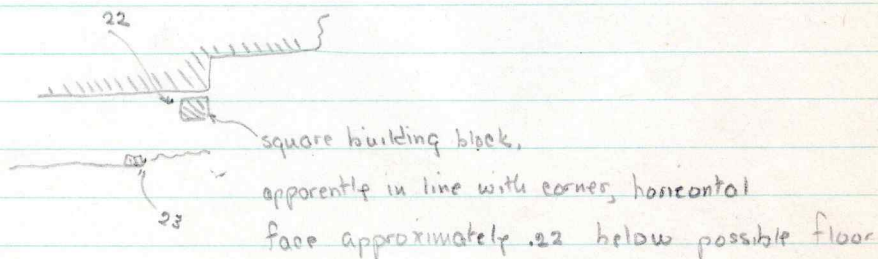 22
square building block,
apparently in line with corner, horizontal
23
face approximately .22 below possible floor